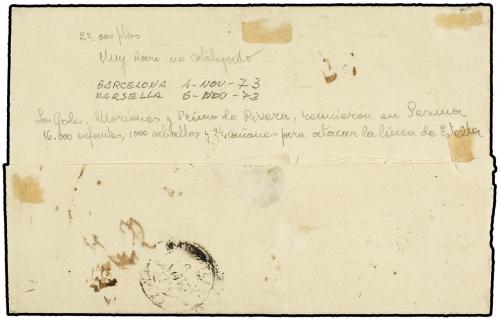 22.000 ptas
Muy raro no catalogado
BARCELONA 4-NOV-73
MARSELLA 6-NOV-73
Los Grales. Moriones y Primo de Rivera, reunieron en Sesma
16.000 infantes, 1000 caballos y 24 cañones para atacar la línea de Estella